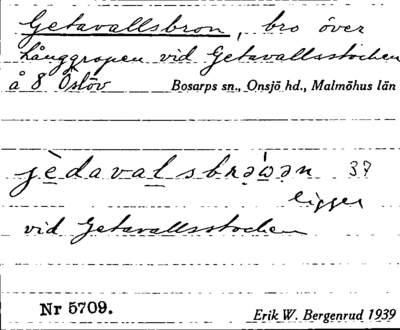 Getavallsbron, bro över
Långgropen vid Getavallsstocken
å 8 Östöv Bosarps sn., Onsjö hd., Malmöhus län
jèdavalsbrə̀wən 37
ligger
vid Getavallsstocken
Nr 5709. Erik W. Bergenrud 1939